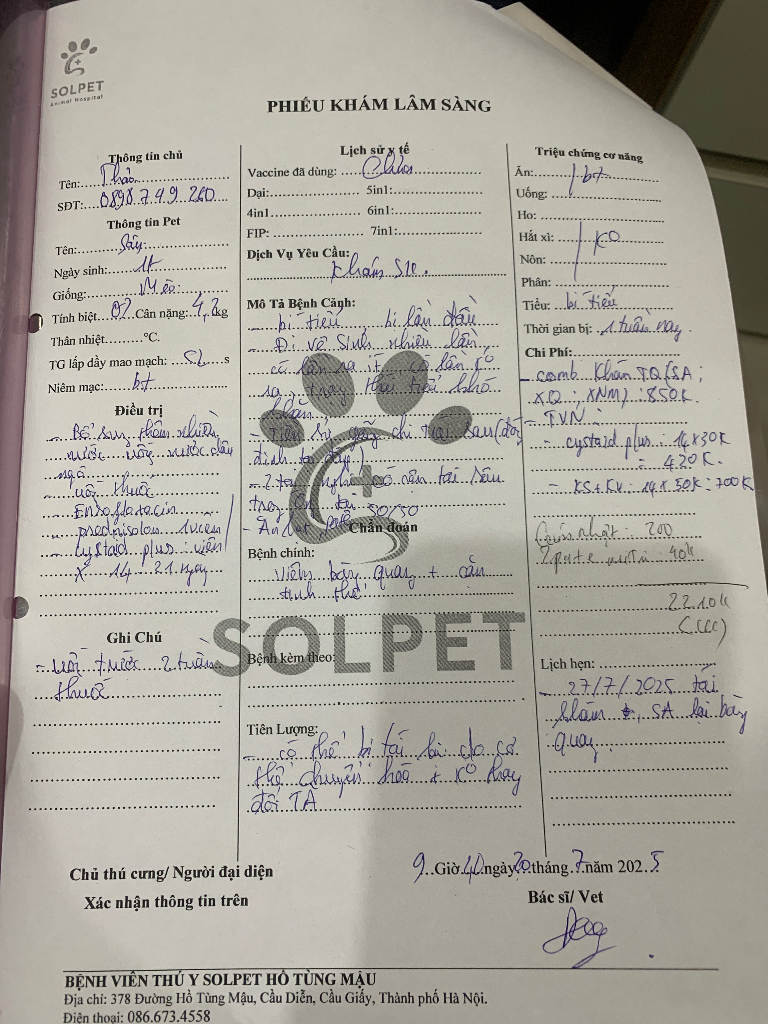 SOLPET
Animal Hospital
PHIẾU KHÁM LÂM SÀNG
Thông tin chủ
Tên: Thảo
SĐT: 0898.749 260
Thông tin Pet
Tên:
Ngày sinh: 1t
Giống: Mèo
Tính biệt Cân nặng: 4,2kg
Thân nhiệt °C.
TG lấp đầy mao mạch: s
Niêm mạc: bt
Điều trị
- Bổ sung thêm nhiều
nước, uống nước râu
ngô
- uống thuốc
- Enrofloxacin
- prednisolon
- cystaid plus: viên
x 14 - 21 ngày
Ghi Chú
- uống trước 2 tuần
thuốc
Lịch sử y tế
Vaccine đã dùng: Chưa
Dại: 5in1:
4in1 6in1:
FIP: 7in1:
Dịch Vụ Yêu Cầu:
Khám SK.
Mô Tả Bệnh Cảnh:
- bí tiểu, bị lần đầu
- Đi vệ sinh nhiều lần,
có lần ra ít, có lần k0
ra, trạng thái tiểu khó
khăn
- Tiền sử gãy chi sau
- 2 tai
trong
- Ăn hạt, pate 50/50
Chẩn đoán
Bệnh chính:
Viêm bàng quang + cặn
tinh thể
SOLPET
Bệnh kèm theo:
Tiên Lượng:
- có thể bị tái lại do cơ
thể chuyển hoá + k0 thay
đổi TA
Triệu chứng cơ năng
Ăn: bt
Uống:
Ho:
Hắt xì: K0
Nôn:
Phân:
Tiểu: bí tiểu
Thời gian bị: 1 tuần nay
Chi Phí:
- comb Khám TQ (SA;
XQ; XNM): 850K.
- TVN:
- cystaid plus: 14x30K
= 420K.
- KS + KV: 14 x 50K: 700K
200
2 pate 40k
2210k
(CK)
Lịch hẹn:
- 27/7/2025 tái
khám, SA lại bàng
quang
9 Giờ 40 ngày 20 tháng 7 năm 2025
Chủ thú cưng/ Người đại diện
Xác nhận thông tin trên
Bác sĩ/ Vet
BỆNH VIỆN THÚ Y SOLPET HỒ TÙNG MẬU
Địa chỉ: 378 Đường Hồ Tùng Mậu, Cầu Diễn, Cầu Giấy, Thành phố Hà Nội.
Điện thoại: 086.673.4558